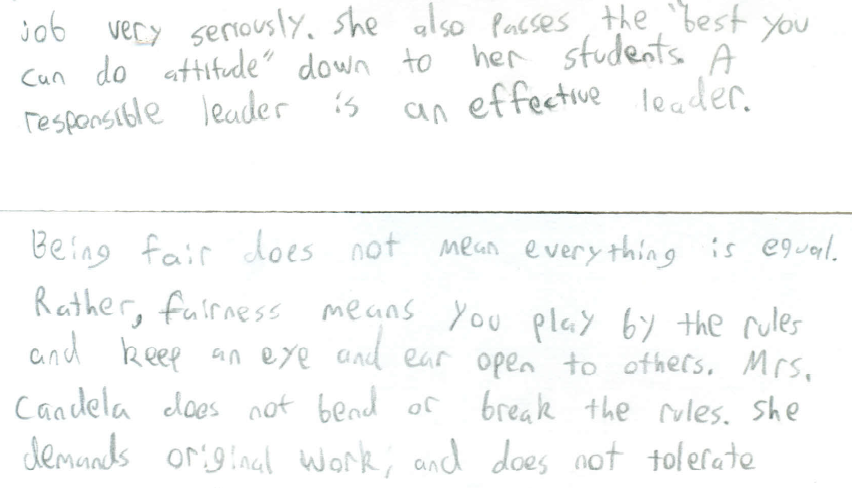 job very seriously. She also passes the "best you
can do attitude" down to her students. A
responsible leader is an effective leader.
Being fair does not mean everything is equal.
Rather, fairness means you play by the rules
and keep an eye and ear open to others. Mrs.
Candela does not bend or break the rules. She
demands original work, and does not tolerate